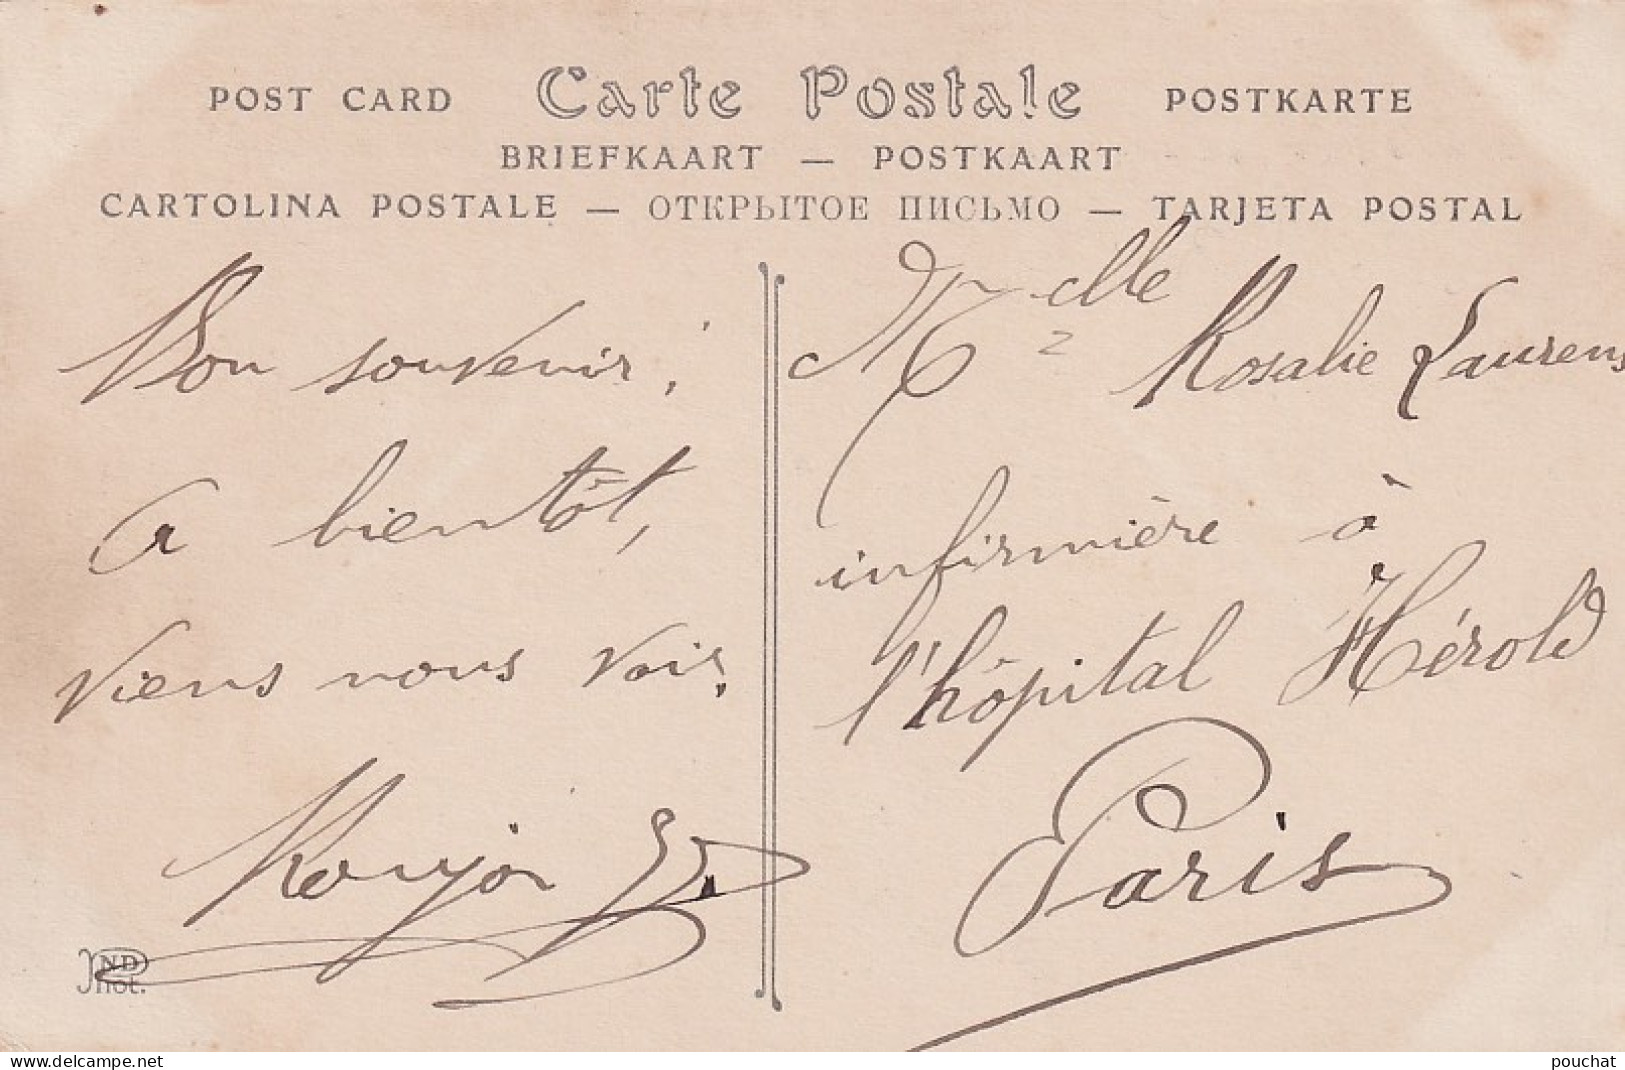 POST CARD Carte Postale POSTKARTE
BRIEFKAART — POSTKAART
CARTOLINA POSTALE — ОТКРЫТОЕ ПИСЬМО — TARJETA POSTAL
Bon souvenir,
a bientôt,
viens nous voir.
Melle Rosalie Laurens
infirmière à
l'hôpital Hérold
Paris
ND
Phot.
www.delcampe.net
pouchat